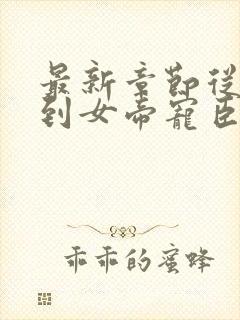 最新章節從
到女帝寵臣
乖乖的蜜蜂